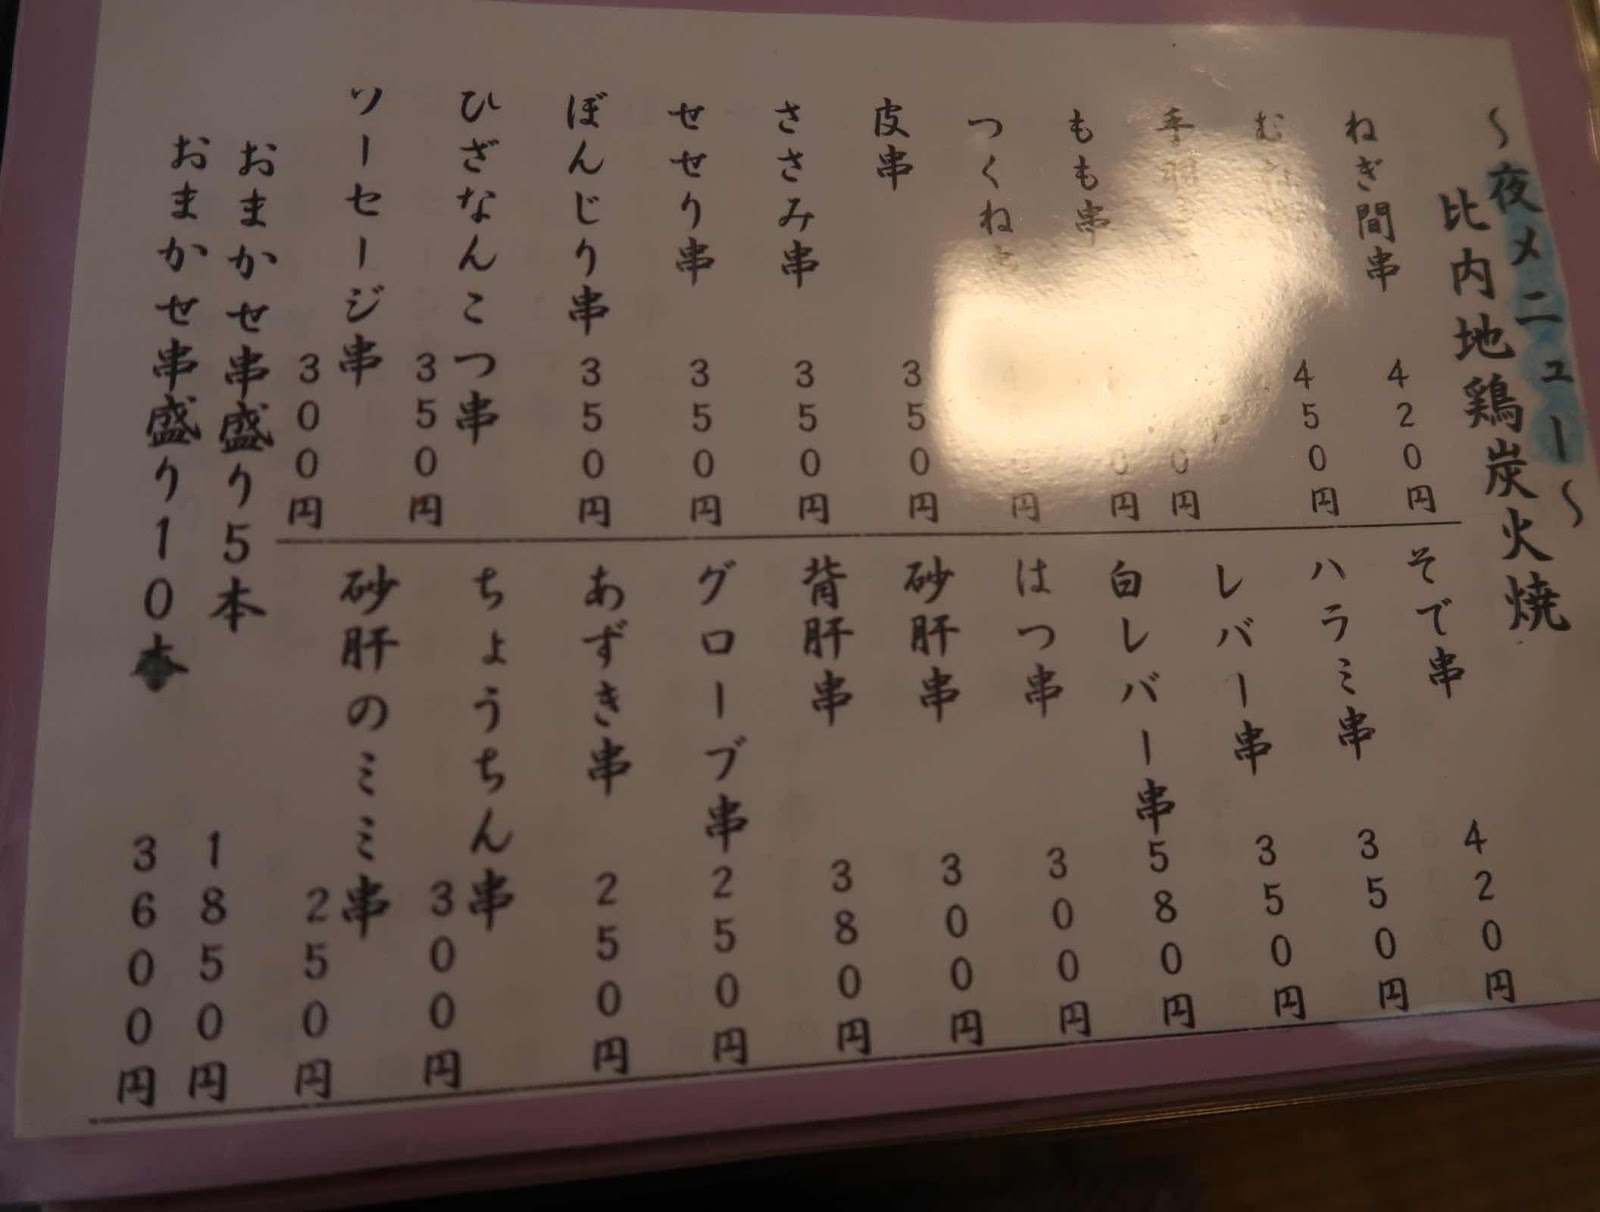 〜夜メニュー〜
比内地鶏炭火焼
ねぎ間串 420円
む 450円
手羽 0円
もも串 0円
つくね 円
皮串 350円
ささみ串 350円
せせり串 350円
ぼんじり串 350円
ひざなんこつ串 350円
ソーセージ串 300円
そで串 420円
ハラミ串 350円
レバー串 350円
白レバー串 580円
はつ串 300円
砂肝串 300円
背肝串 380円
グローブ串 250円
あずき串 250円
ちょうちん串 300円
砂肝のミミ串 250円
おまかせ串盛り5本 1850円
おまかせ串盛り10本 3600円